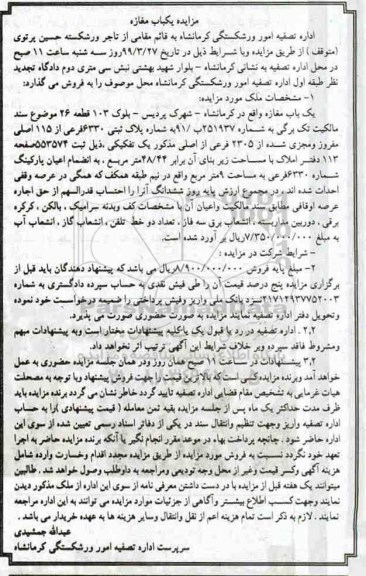 مزایده یکباب مغازه
اداره تصفیه امور ورشکستگی کرمانشاه به قائم مقامی از تاجر ورشکسته حسین پرتوی
(متوقف) از طریق مزایده وبا شرایط ذیل در تاریخ ۹۹/۳/۲۷روز سه شنبه ساعت ۱۱ صبح
در محل اداره تصفیه به نشانی کرمانشاه - بلوار شهید بهشتی نبش سی متری دوم دادگاه تجدید
نظر طبقه اول اداره تصفیه امور ورشکستگی کرمانشاه محل موصوف را به فروش می گذارد:
۱- مشخصات ملک مورد مزایده:
یک باب مغازه واقع در کرمانشاه - شهرک پردیس - بلوک ۱۰۳ قطعه ۲۶ موضوع سند
مالکیت تک برگی به شماره ۲۵۱۹۳۷ب /۹۱به شماره پلاک ثبتی ۶۳۳۰فرعی از ۱۱۵ اصلی
مفروز ومجزی شده از ۲۳۰۵ فرعی از اصلی مذکور یک تفکیکی ،ذیل ثبت ۵۵۳۵۷۴صفحه
۱۱۳ دفتر املاک با مساحت زیر بنای آن برابر ۴۸/۴۴متر مربع ، به انضمام اعیان پارکینگ
شماره ۶۳۳۰فرعی به مساحت ۹متر مربع واقع در نیم طبقه همکف که همگی در عرصه وقفی
احداث شده اند ، در مجموع ارزش پایه روز ششدانگ آنرا با احتساب قدرالسهم از حق اجاره
عرصه اوقافی مطابق سند مالکیت واعیان آن با مشخصات کف وبدنه سرامیک ، بالکن ، کرکره
برقی ، دوربین مداربسته ، انشعاب برق سه فاز ، تعداد دو خط تلفن ، انشعاب گاز ، انشعاب آب
به مبلغ ۷/۳۵۰/۰۰۰/۰۰۰ریال بر آورد شده است.
- شرایط شرکت در مزایده :
۲- مبلغ پایه فروش ۸/۹۰۰/۰۰۰/۰۰۰ریال می باشد که پیشنهاد دهندگان باید قبل از
برگزاری مزایده پنج درصد قیمت آن را طی فیش نقدی به حساب سپرده دادگستری به شماره
۲۱۷۱۲۹۳۷۷۵۲۰۰۳نزد بانک ملی واریز وفیش پرداختی را ضمیمه درخواست خود نموده
وتحویل دفتر اداره تصفیه نمایند مزایده به صورت حضوری صورت می پذیرد.
۲.۲ . اداره تصفیه در رد یا قبول یک یاکلیه پیشنهادات مختار است وبه پیشنهادات مبهم
ومشروط فاقد سپرده وبر خلاف شرایط این آگهی ترتیب اثر نخواهد داد.
۳.۲ پیشنهادات در ساعت ۱۱ صبح همان روز ودر همان جلسه مزایده حضوری به عمل
خواهد آمد وبرنده مزایده کسی است که بالاترین قیمت را جهت فروش پیشنهاد وبا توجه به مصلحت
هیات غرمایی به تشخیص مقام قضایی اداره تصفیه تایید گردد خاطر نشان می گردد برنده مزایده باید
ظرف مدت حداکثر یک ماه پس از جلسه مزایده بقیه ثمن معامله ( قیمت پیشنهادی )را به حساب
اداره تصفیه واریز وجهت تنظیم وانتقال سند در یکی از دفاتر اسناد رسمی تعیین شده از سوی این
اداره حاضر شود . چنانچه پرداخت بهاء در موعد مقرر انجام نگیر یا آنکه برنده مزایده حاضر به اجرا
تعهد خود نگردد نسبت به فروش مورد مزایده از طریق مزایده مجدد اقدام وخسارت وارده شامل
هزینه آگهی وکسر قیمت وغیر از محل وجه تودیعی ومراجعه به داوطلب وصول خواهد شد . طالبین
میتوانند یک هفته قبل از مزایده با در دست داشتن معرفی نامه از سوی این اداره از ملک مذکور دیدن
نمایند وجهت کسب اطلاع بیشتر وآگاهی از جزئیات موارد مزایده می توانند به این اداره مراجعه
نمایند . لازم به ذکر است تمام هزینه اعم از نقل وانتقال وسایر هزینه ها به عهده خریدار می باشد .
عبدالله جمشیدی
سرپرست اداره تصفیه امور ورشکستگی کرمانشاه